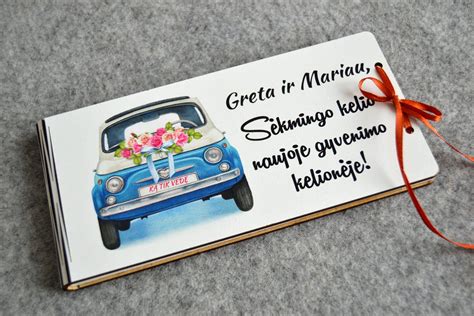 Greta ir Mariau,
Sėkmingo kelio
naujoje gyvenimo
kelionėje!
KĄ TIK VEDĘ